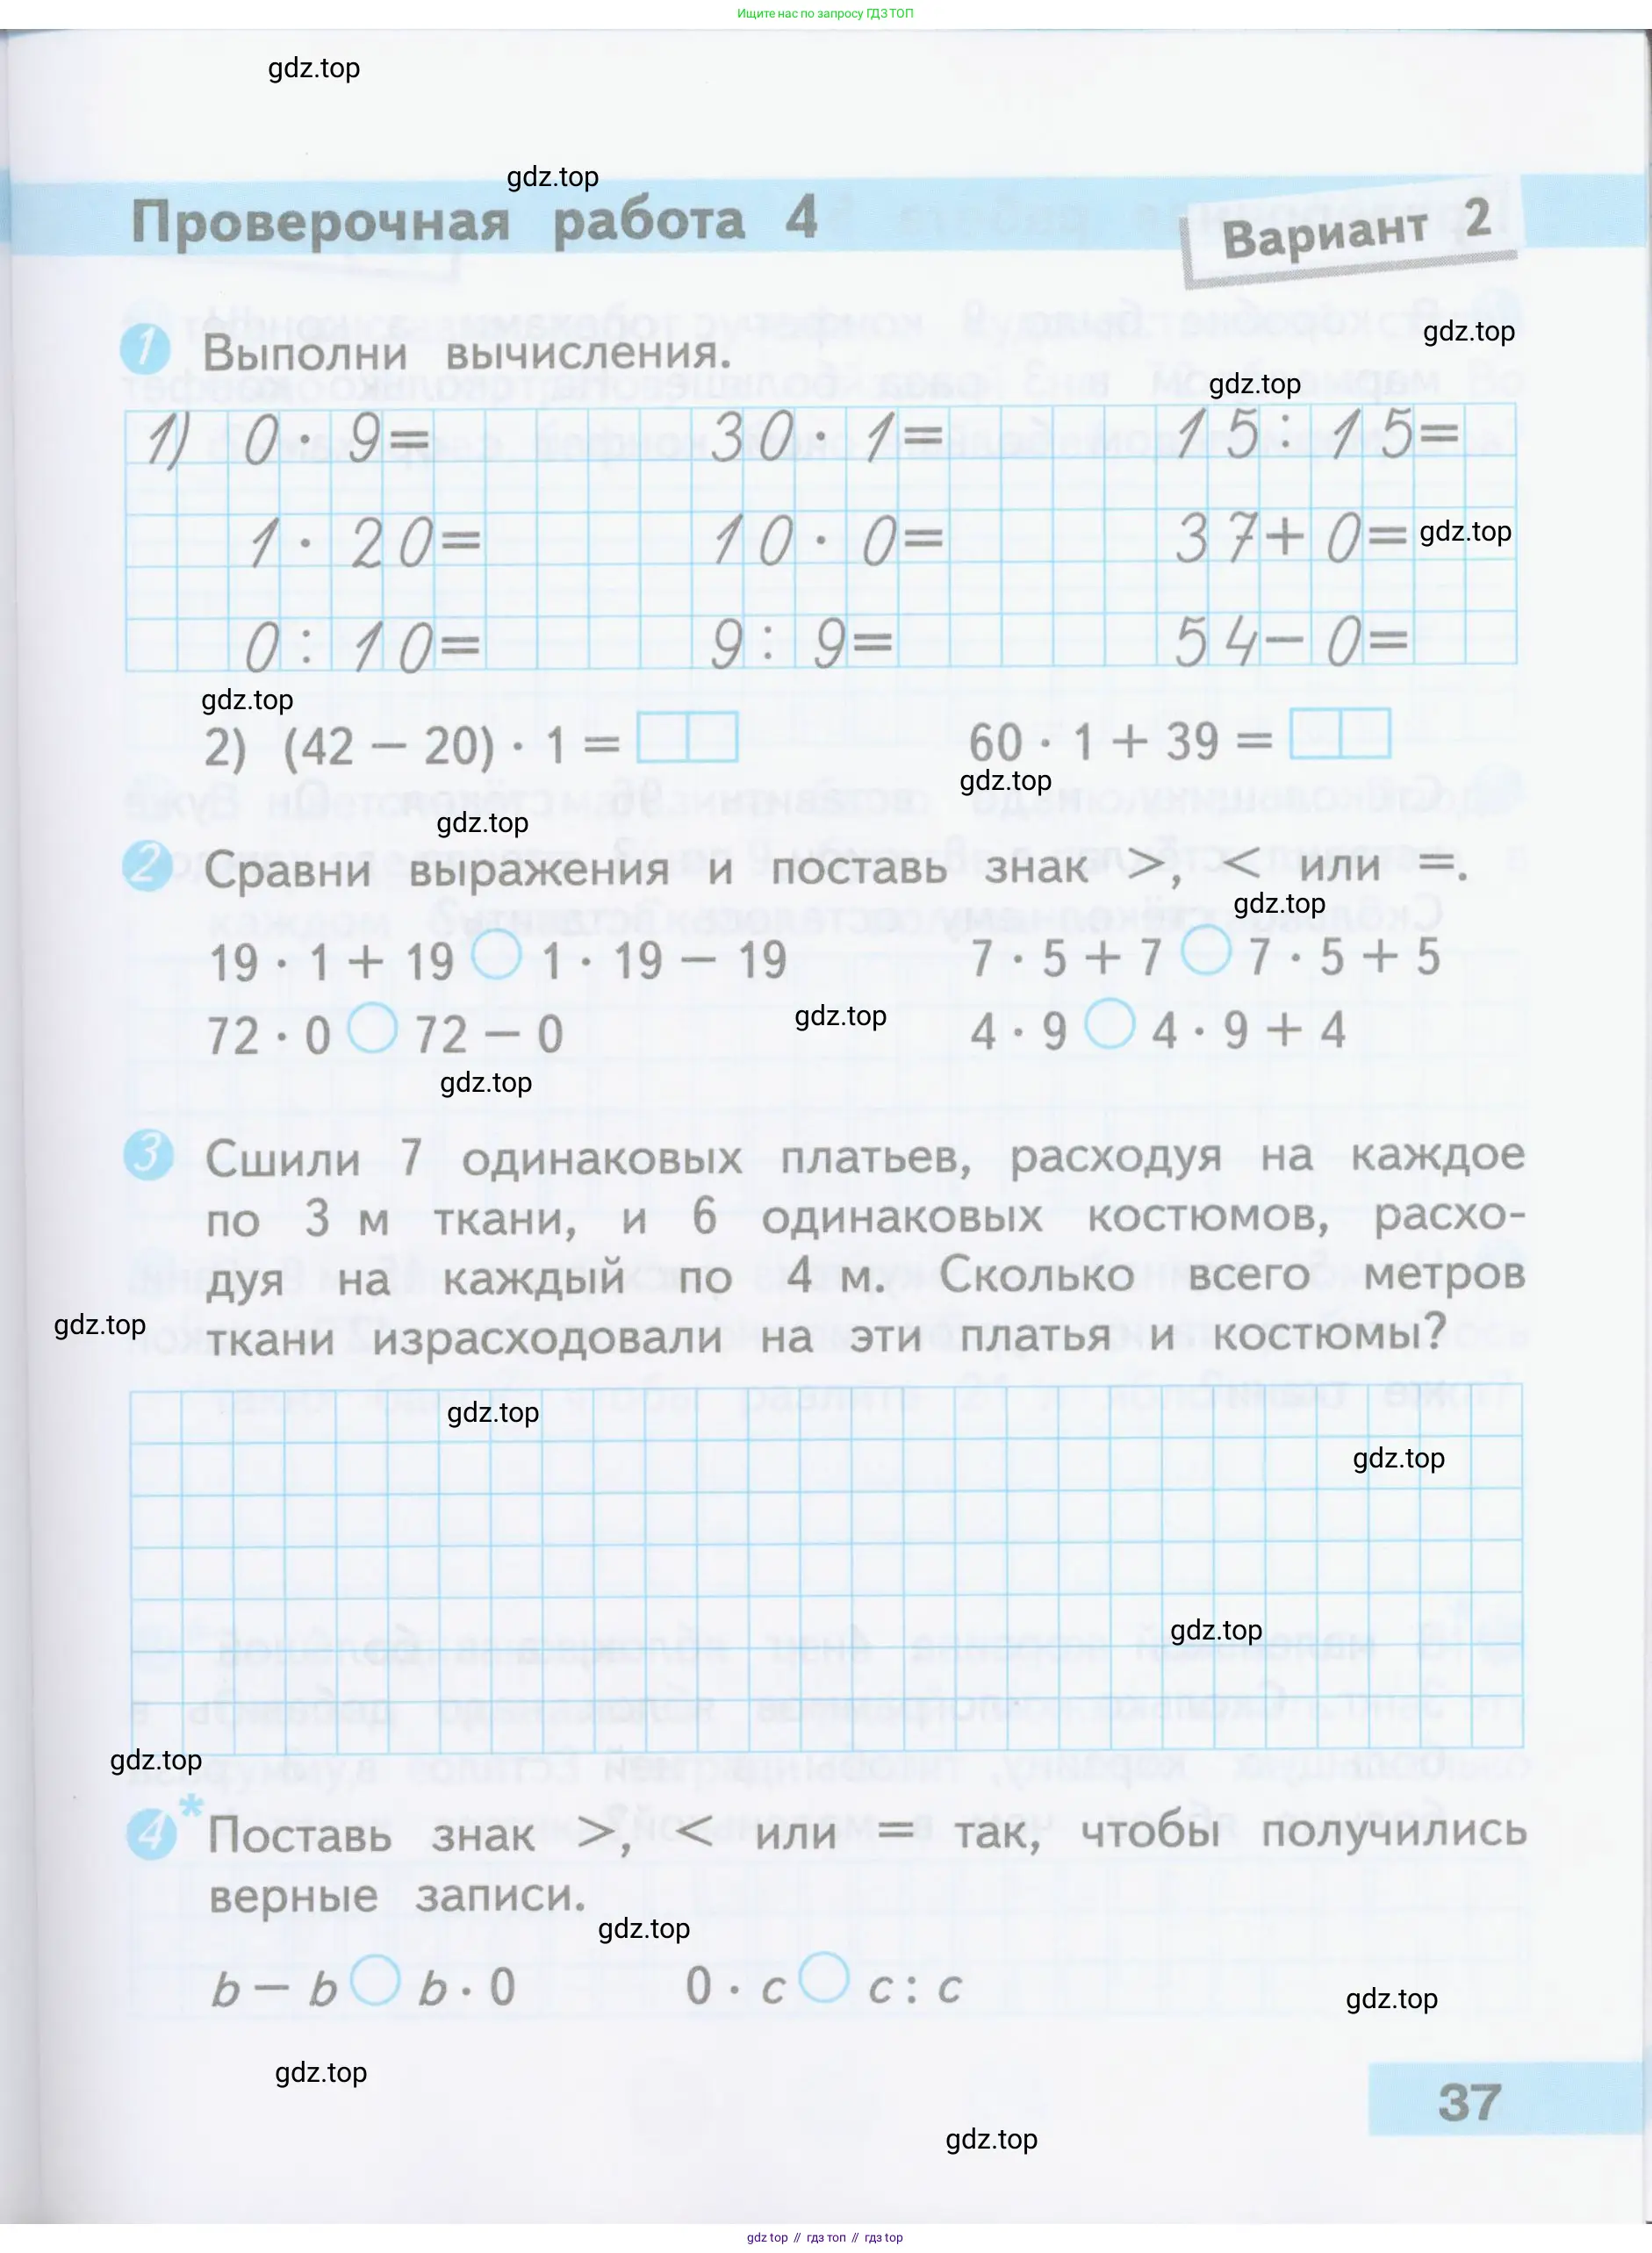 Ищите нас по запросу ГДЗ ТОП
gdz.top
gdz.top
Проверочная работа 4
Вариант 2
gdz.top
1 Выполни вычисления.
gdz.top
1) 0 · 9= 30 · 1= 15 : 15=
1 · 20= 10 · 0= 37+ 0= gdz.top
0 : 10= 9 : 9= 54− 0=
gdz.top
2) (42 − 20) · 1 = 60 · 1 + 39 =
gdz.top
gdz.top
2 Сравни выражения и поставь знак >, < или =.
gdz.top
19 · 1 + 19 1 · 19 − 19 7 · 5 + 7 7 · 5 + 5
gdz.top
72 · 0 72 − 0 4 · 9 4 · 9 + 4
gdz.top
3 Сшили 7 одинаковых платьев, расходуя на каждое
по 3 м ткани, и 6 одинаковых костюмов, расхо-
дуя на каждый по 4 м. Сколько всего метров
gdz.top
ткани израсходовали на эти платья и костюмы?
gdz.top
gdz.top
gdz.top
gdz.top
4* Поставь знак >, < или = так, чтобы получились
верные записи.
gdz.top
b − b b · 0 0 · c c : c
gdz.top
gdz.top
37
gdz.top
gdz top // гдз топ // gdz top